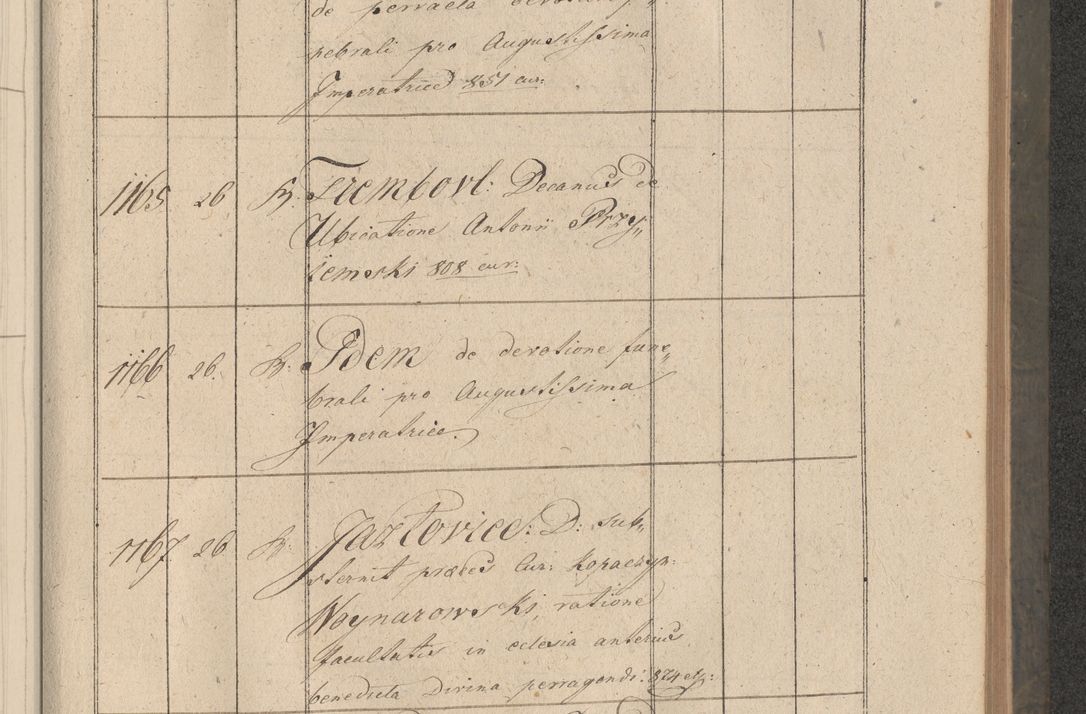 de peracta devotione
nebrali pro Augustissima
Imperatrice 851 cur:
1165 26 Fr. Trembovl: Decanus de
Ubicatione Antonii Przy„
iemski 808 cur:
1166 26. Fr: Idem de devotione fune„
brali pro Augustissima
Imperatrice.
1167 26 Fr: Jazlovice: D: sub„
sternit præces Cur: Kopaczyn:
Woynarowski, ratione
facultatis in eclesia anterius
benedicta Divina perragendi: 874